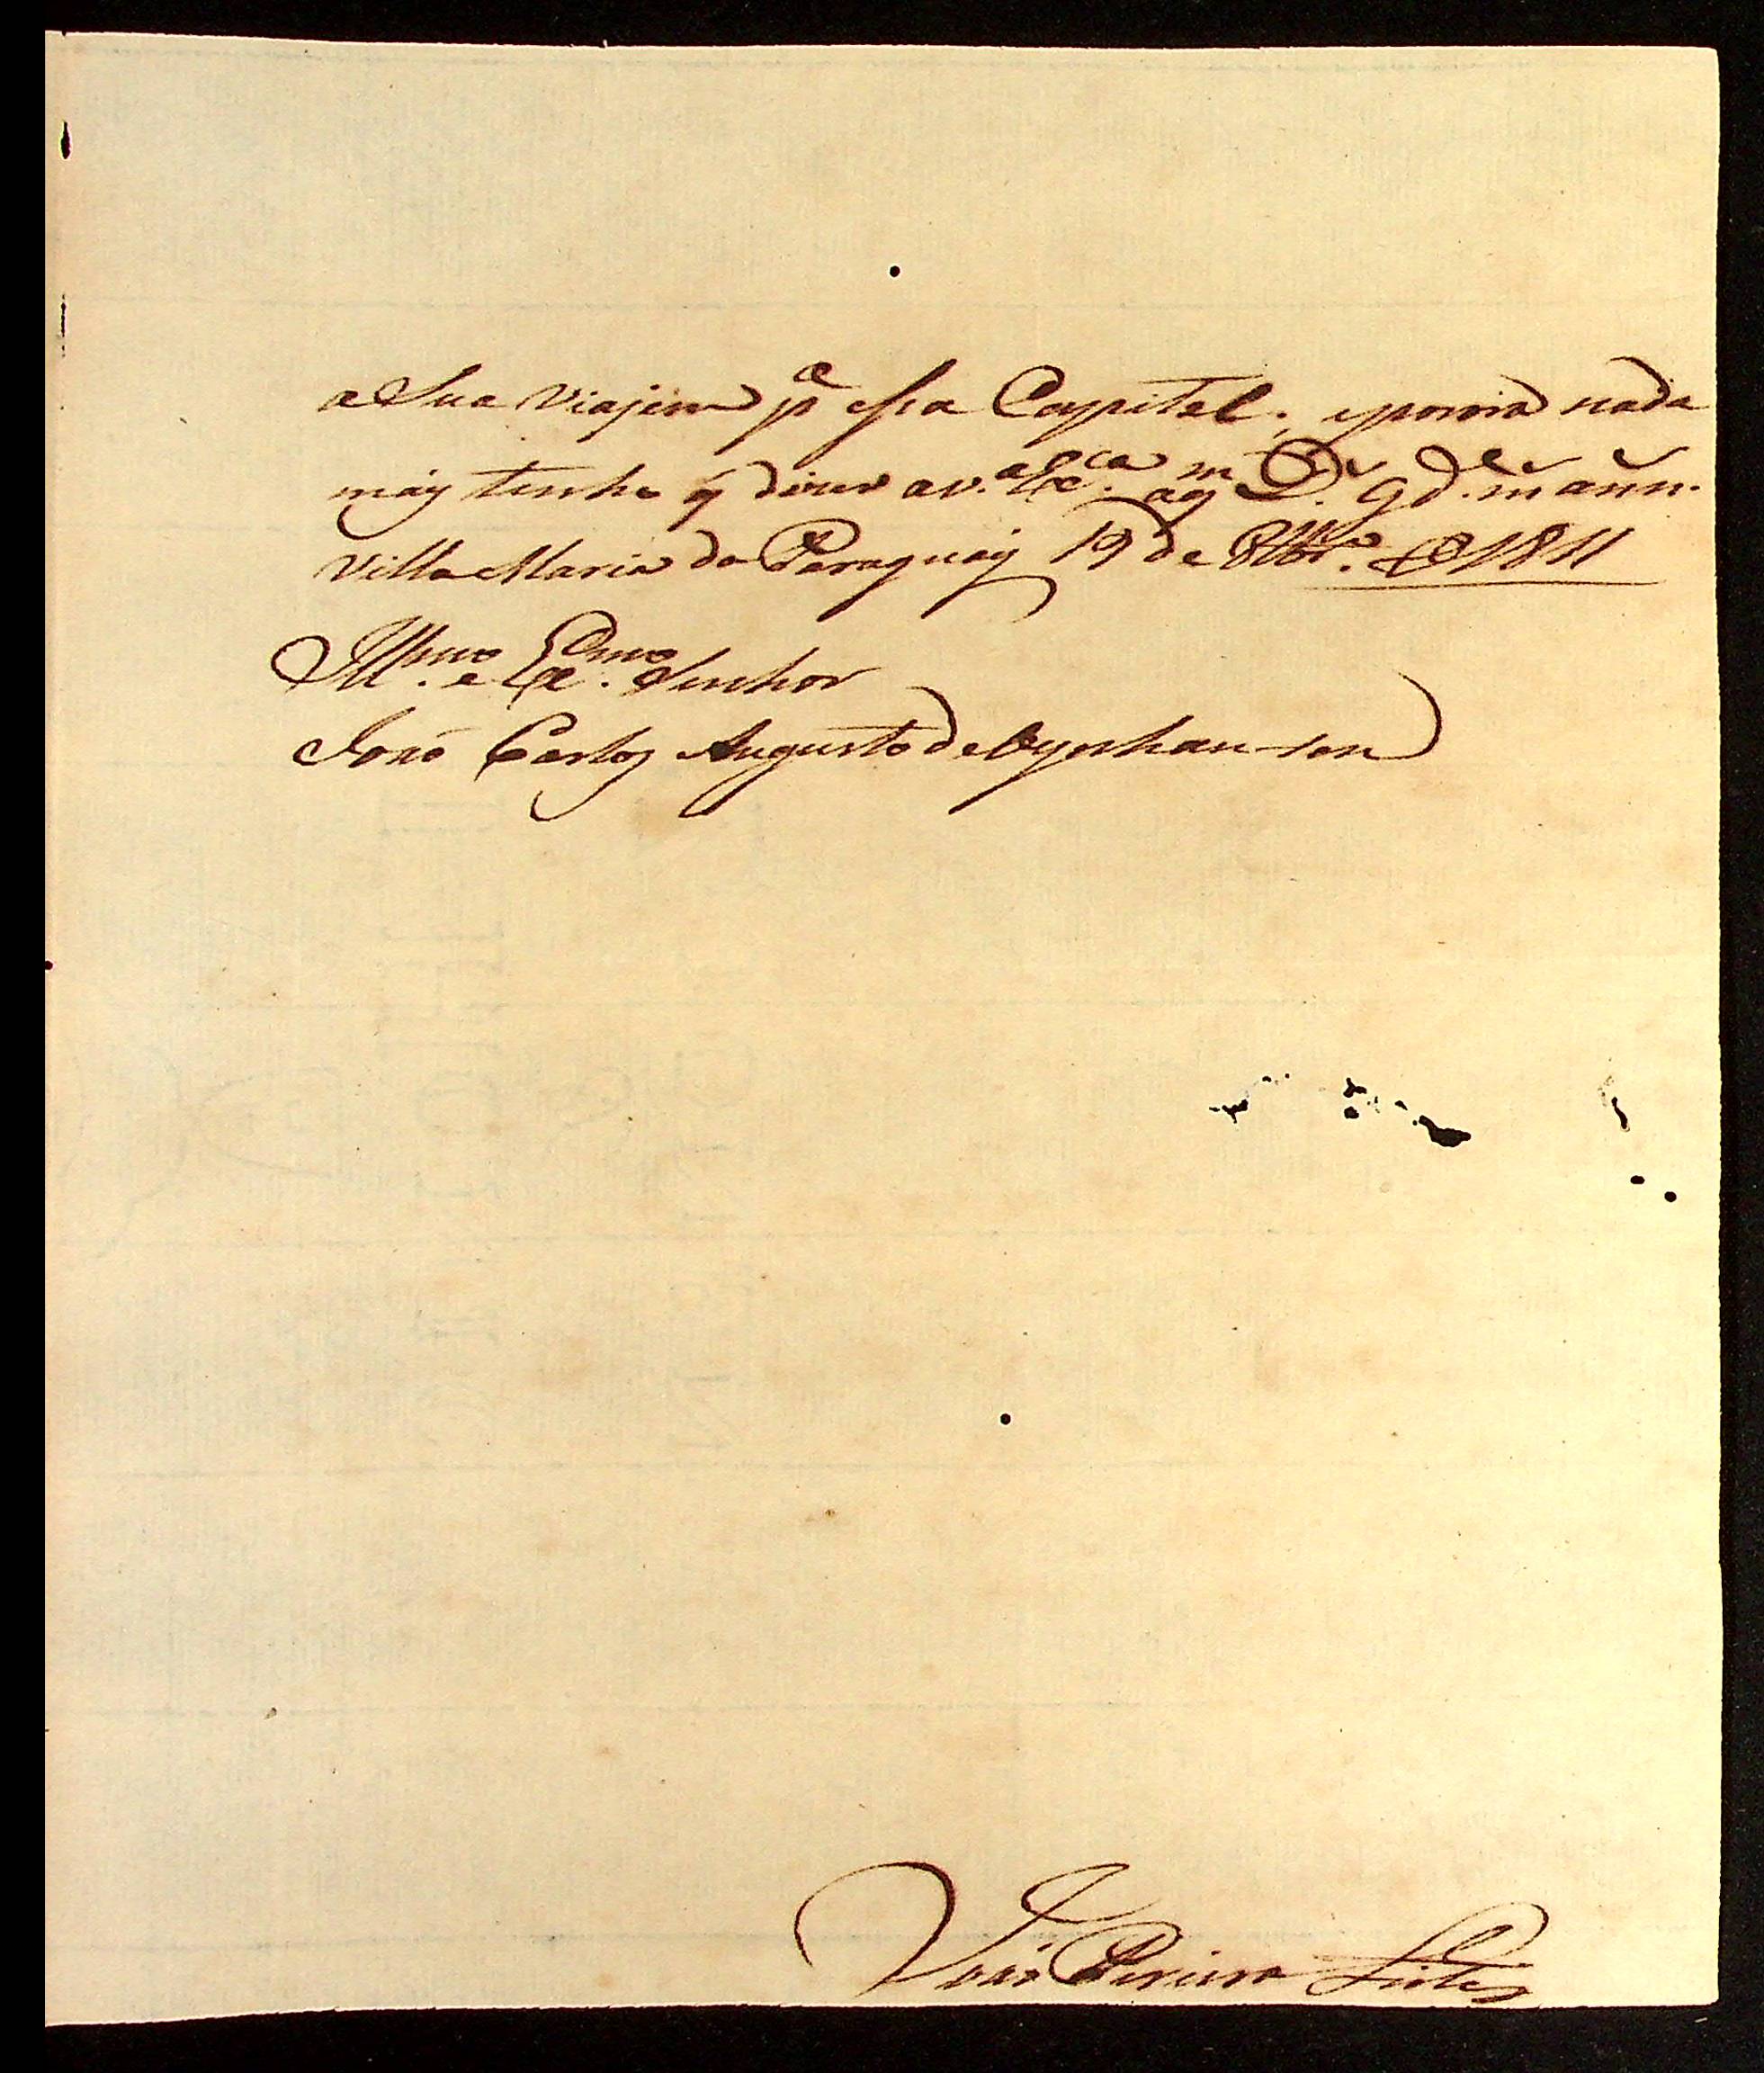 a Sua Viajem pª essa Capital; eporora nada
mais tenho q̃ dizer aV.ª Exc.ª aqm D.s gd.e m.s ann.s
Villa Maria do Paraguay 19 de 8br.º D 1811
Ill.mo e Ex.mo Senhor
João Carlos Augusto de Oyenhausen
João Pereira Leite